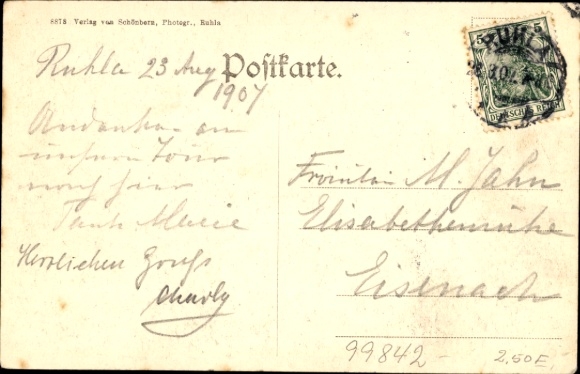 8878 Verlag von Schönbern, Photogr., Ruhla
Ruhla 23 Aug
1907
Postkarte.
5 5
DEUTSCHES REICH
RUHLA
Andenken an
unsere Tour
nach hier
Tante Marie
Herzlichen Gruß
Charly
Fräulein M. Jahn
Elisabethenruhe
Eisenach
99842 -
2,50 E